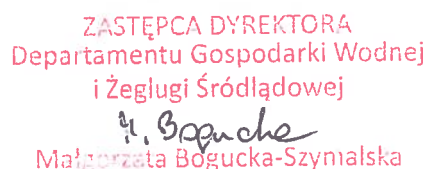 ZASTĘPCA DYREKTORA
Departamentu Gospodarki Wodnej
i Żeglugi Śródlądowej
M. Bogucka
Małgorzata Bogucka-Szymalska